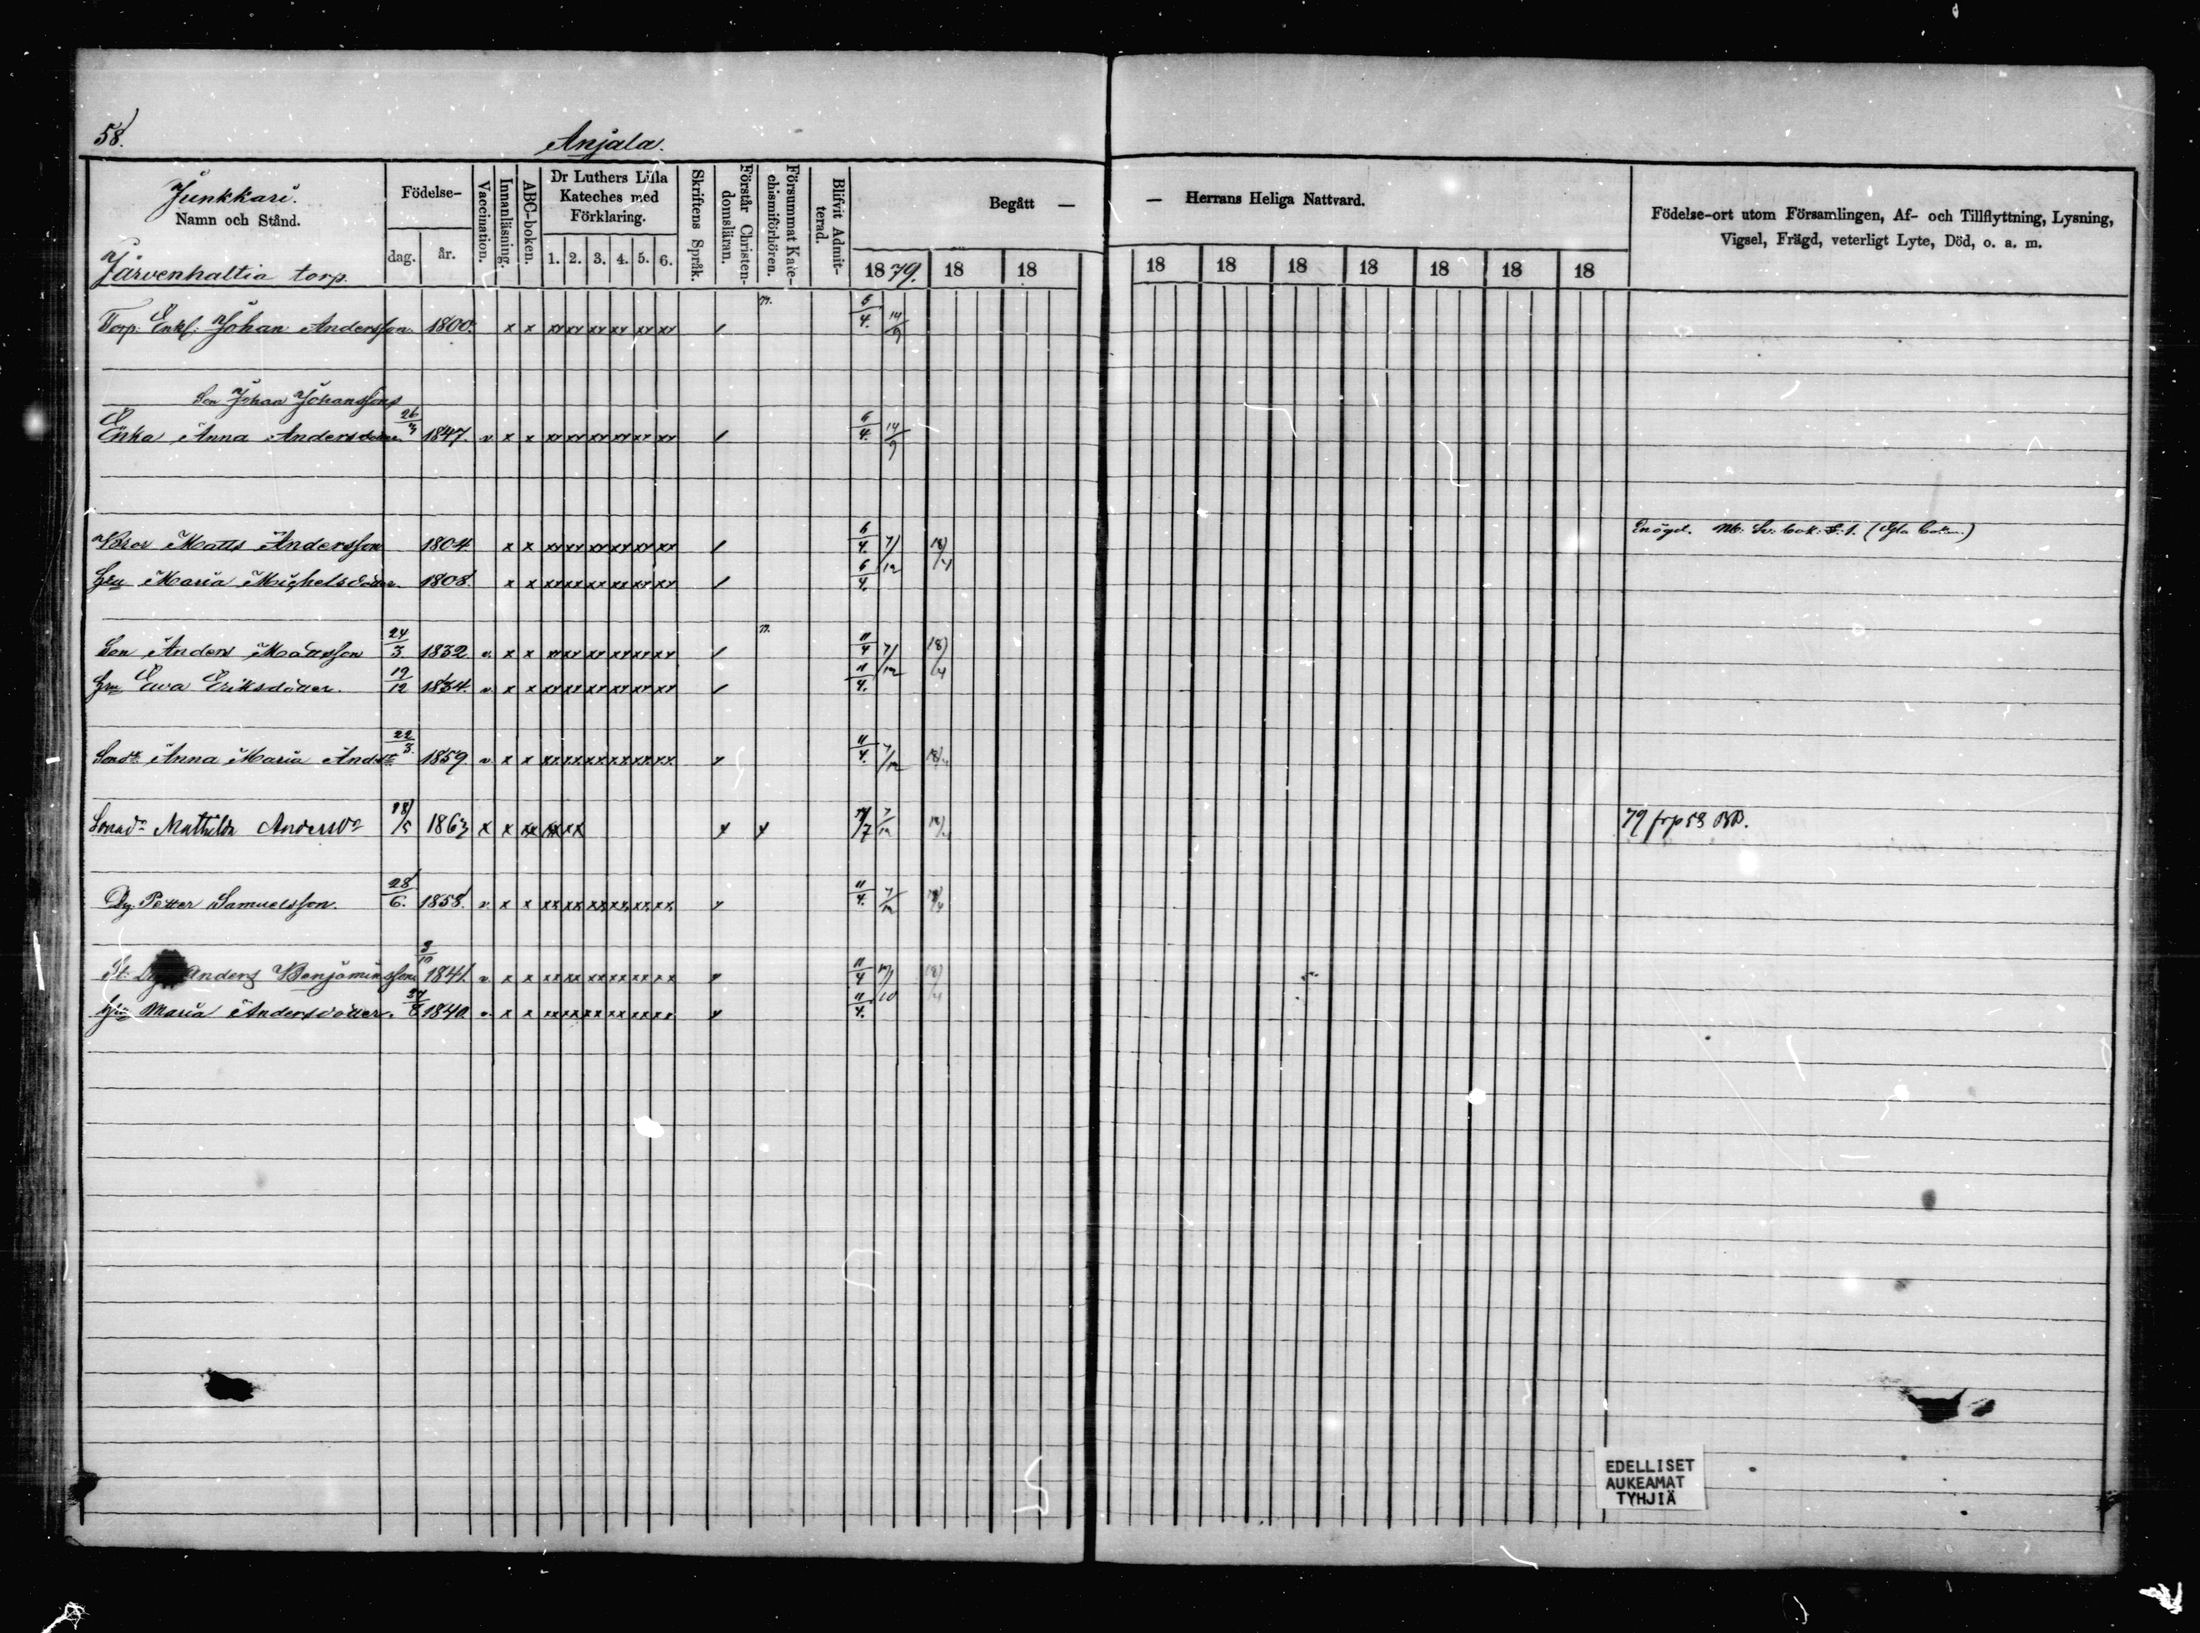 58.
Anjala.
Junkkari.
Namn och Stånd.
Järvenhaltia torp.
Födelse-
dag. år.
Vaccination.
Innanläsning.
ABC-boken.
Dr Luthers Lilla
Kateches med
Förklaring.
1. 2. 3. 4. 5. 6.
Skriftens Språk.
Förstår Christen-
domsläran.
Försummat Kate-
chismiförhören.
Blifvit Admit-
terad.
Begått —
— Herrans Heliga Nattvard.
1879. 18 18
18 18 18 18 18 18 18
Födelse-ort utom Församlingen, Af- och Tillflyttning, Lysning,
Vigsel, Frägd, veterligt Lyte, Död, o. a. m.
Torp. Enkl. Johan Andersson. 1800. x x xx xx xx xx xx xx / 6/4. 14/9
Son Johan Johanssons
Enka Anna Andersdotter. 26/3 1847. v x x xx xx xx xx xx xx / 6/4. 14/9
Bror Matts Andersson 1804. x x xx xx xx xx xx xx / 6/4. 7/12 18/4 Enögd.
Hu Maria Michelsdotter. 1808. x x xx xx xx xx xx xx / 6/4.
Son Anders Mattsson 24/3 1832. v. x x xx xx xx xx xx xx / 11/4 7/12 18/4
Hu Ewa Eriksdotter. 19/12 1834. v x x xx xx xx xx xx xx / 11/4.
Anna Maria 22/3. 1859. v x x xx xx xx xx xx xx 11/4. 7/12 18/4
Mathilda Andersdr 18/5 1863 x x xx xx xx x x 7/12 79 fr p 58 BB.
Dg. Petter Samuelsson. 28/6. 1858. v x x xx xx xx xx xx xx 11/4. 7/12
Anders Benjaminsson 1841. v x x xx xx xx xx xx xx 11/4 18/4
Hu Maria Andersdotter. 1840. v. x x xx xx xx xx xx xx 11/4.
EDELLISET
AUKEAMAT
TYHJIÄ